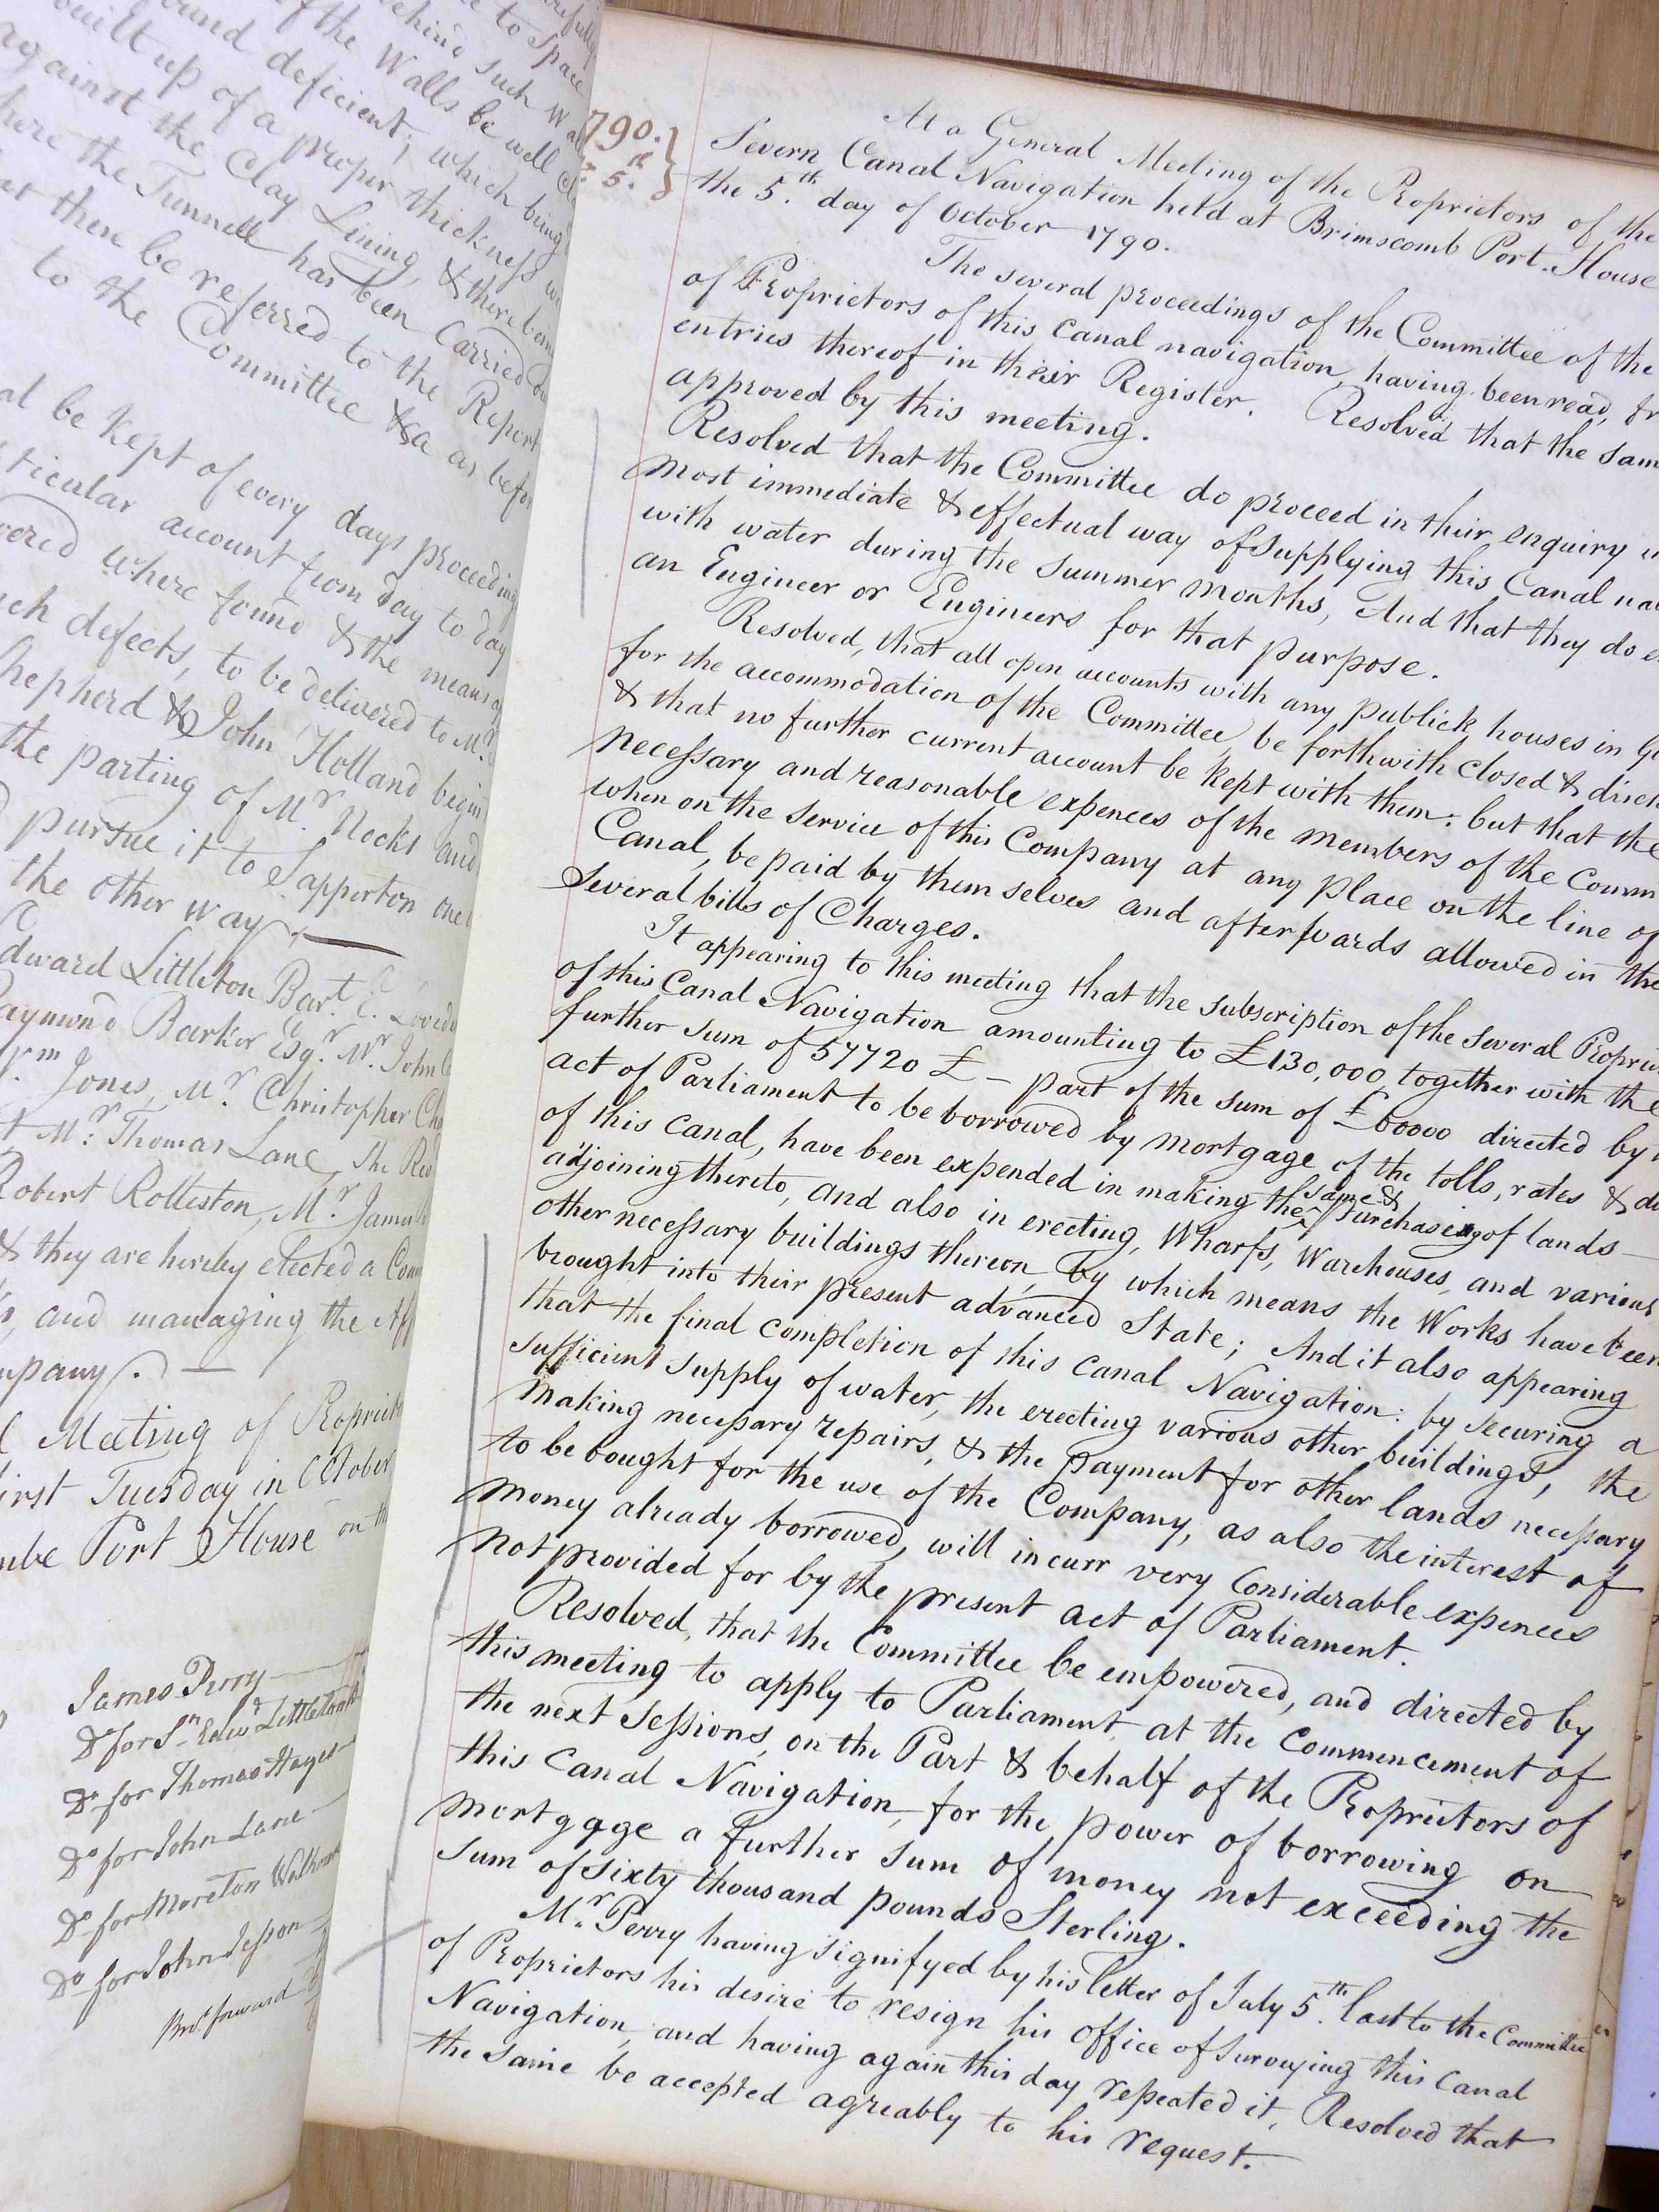 to Space
behind such
of the Walls be well
found deficient; which being
built up of a proper thickness
against the Clay Lining, & there being
where the Tunnell has been Carried
then be referred to the Report
to the Committee &ca as
al be kept of every days proceeding
ticular account from day to day
vered where found & the means of
uch defects, to be delivered to Mr.
hepherd & John Holland begin
the parting of Mr. Nocks and
pursue it to Sapperton one
the other way.
dward Littleton Bart. E. Loved
aymund Barker Esqr. Mr. John
Jones, Mr. Christopher
Mr. Thomas Lane, the Rev
Robert Rolleston, Mr. James
& they are hereby elected a Com
and managing the Aff
mpany.
Meeting of Propriet
first Tuesday in October
mbe Port House on th
James Perry
Do for Sr. Edwd Littleton
Do for Thomas Hayes
Do for John Lane
Do for Moreton
Do for John Jesson
forward
790.
5.th
At a General Meeting of the Proprietors of the
Severn Canal Navigation held at Brimscomb Port-House
the 5.th day of October 1790.
The several proceedings of the Committee of the
of Proprietors of this canal navigation, having been read, fr
entries thereof in their Register. Resolved, that the sam
approved by this meeting.
Resolved that the Committee do proceed in their enquiry
most immediate & effectual way of supplying this Canal na
with water during the summer months, And that they do
an Engineer or Engineers for that purpose.
Resolved, that all open accounts with any publick houses in
for the accommodation of the Committee, be forthwith closed &
& that no further current account be kept with them: but that the
necessary and reasonable expences of the members of the Comm
when on the service of this Company at any place on the line of
Canal, be paid by themselves and afterwards allowed in the
several bills of Charges.
It appearing to this meeting that the subscription of the several Proprie
of this Canal Navigation amounting to £130,000, together with the
further sum of 57720 £ - part of the sum of £60000 directed by
act of Parliament to be borrowed by mortgage of the tolls, rates & du
of this canal, have been expended in making the same & Purchasing of lands
adjoining thereto, and also in erecting, Wharfs, Warehouses, and various
other necessary buildings thereon, by which means the Works have been
brought into their present advanced State; And it also appearing
that the final completion of this Canal Navigation: by securing a
sufficient supply of water, the erecting various other buildings, the
making necessary repairs, & the payment for other lands necessary
to be bought for the use of the Company, as also the interest of
money already borrowed, will incurr very Considerable expences
not provided for by the present act of Parliament.
Resolved, that the Committee be empowered, and directed by
this meeting to apply to Parliament at the Commencement of
the next Sessions, on the Part & behalf of the Proprietors of
this Canal Navigation, for the power of borrowing on
mortgage a further sum of money not exceeding the
sum of sixty thousand pounds Sterling.
Mr. Perry having signifyed by his letter of July 5th. last to the Committee
of Proprietors his desire to resign his office of surveying this Canal
Navigation, and having again this day repeated it, Resolved that
the same be accepted agreably to his request.